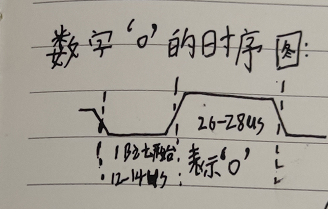 数字‘0’的时序图:
26-28us
1Bit开始
12-14us
表示‘0’